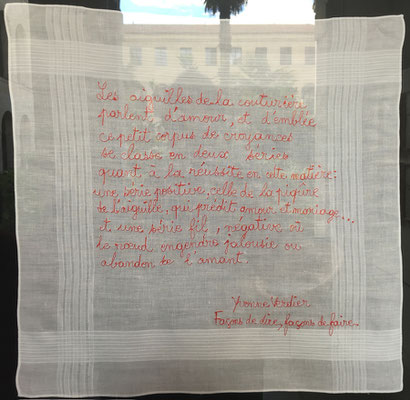 Les aiguilles de la couturière
parlent d'amour, et d'emblée
ce petit corpus de croyances
se classe en deux séries
quant à la réussite en cette matière:
une série positive, celle de la piqûre
de l'aiguille, qui prédit amour et mariage...
et une série fil, négative où
le nœud engendre jalousie ou
abandon de l'amant.
Yvonne Verdier
Façons de dire, façons de faire.